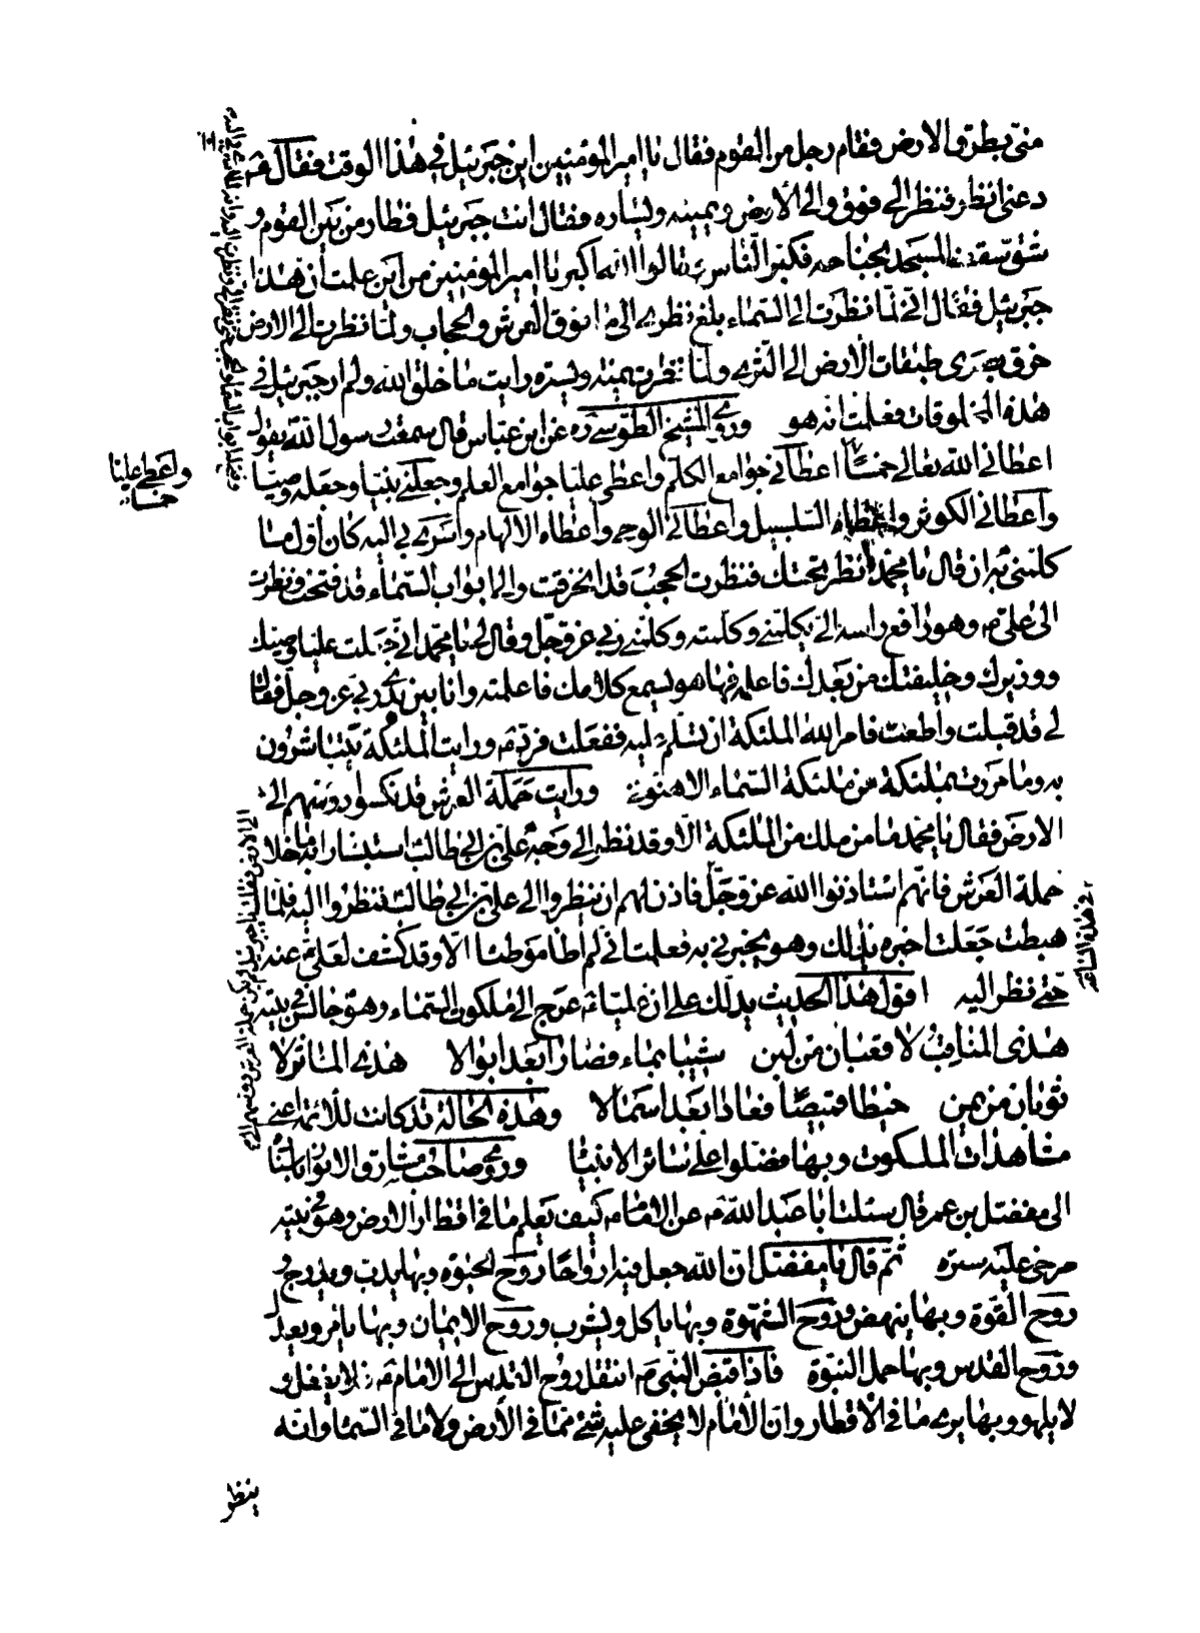 منّي بطرق الارض فقام رجل من القوم فقال يا امير المؤمنين اين جبرئيل في هذا الوقت فقال ع
دعني انظر فنظر الى فوق والى الأرض ويمينه ويساره فقال انت جبرئيل فطار من بين القوم و
شق سقف المسجد بجناحه فكبر الناس وقالوا الله اكبر يا امير المؤمنين من اين علمت ان هذا
جبرئيل فقال اني لما نظرت الى السماء بلغ نظري الى ما فوق العرش والحجاب ولما نظرت الى الارض
خرق بصرى طبقات الأرض الى الثرى ولما نظرت يمينه ويسره رايت ما خلق الله ولم ار جبرئيل في
هذه المخلوقات فعلمت انه هو وروى الشيخ الطوسي ره عن ابن عباس قال سمعت رسول الله يقول
اعطاني الله تعالى خمسًا اعطاني جوامع الكلم واعطى عليا جوامع العلم وجعلني نبيا وجعله وصيا
واعطاني الكوثر واعطاه السلسبيل واعطاني الوحي واعطاه الالهام واسرى بي اليه كان اول ما
كلمني به ان قال يا محمد انظر تحتك فنظرت الحجب قد انخرقت والى ابواب السماء قد فتحت ونظرت
الى علي ع وهو رافع راسه الي يكلمني وكلمته وكلمني ربي عز وجل وقال لي يا محمد اني جعلت عليا وصيك
ووزيرك وخليفتك من بعدك فاعلمه فها هو يسمع كلامك فاعلمته وانا بين يدي ربي عز وجل فقال
لي قد قبلت واطعت فامر الله الملئكة ان تسلم عليه ففعلت فرد ع ورايت الملئكة يتباشرون
به وما مررت بملئكة من ملئكة السماء الا هنوني ورايت حملة العرش قد نكسوا رؤسهم الى
الارض فقال يا محمد ما من ملك من الملئكة الا وقد نظر الى وجه علي بن ابي طالب استبشارا به ما خلا
حملة العرش فانهم استاذنوا الله عز وجل فاذن لهم ان ينظروا الى علي بن ابي طالب فنظروا اليه فلما
هبطت جعلت اخبره بذلك وهو يخبرني به فعلمت اني لم اطا موطئا الا وقد كشف لعلي ع عنه
حتى نظر اليه اقول هذا الحديث يدلك على ان عليا ع عرج الى ملكوت السماء وهو جالس في بيته
هذى المناقب لا قعبان من لبن شيبا بماء فصارا بعد ابوالا هذى المآثر لا
ثوبان من يمن خيطا قميصًا فعادا بعد اسمالا وهذه الحالة قد كانت للأئمة اعني
مشاهدات الملكوت وبها فضلوا على سائر الانبياء وروى صاحب مشارق الانوار باسناده
الى مفضل بن عمر قال سئلت ابا عبد الله ع عن الامام كيف يعلم ما في اقطار الارض وهو في بيته
مرخى عليه ستره ثم قال يا مفضل ان الله جعل فيه ارواحًا روح الحيوة وبها يدب ويدرج و
روح القوة وبها ينهض وروح الشهوة وبها ياكل ويشرب وروح الايمان وبها يامر ويعدل
وروح القدس وبها حمل النبوة فاذا قبض النبي ص انتقل روح القدس الى الامام ع فلا يغفل و
لا يلهو وبها يرى ما في الأقطار وان الأمام لا يخفى عليه شئ مما في الأرض ولا ما في السماء وانه
ينظر
واعطى عليا
خمسا
في هذه الساعة